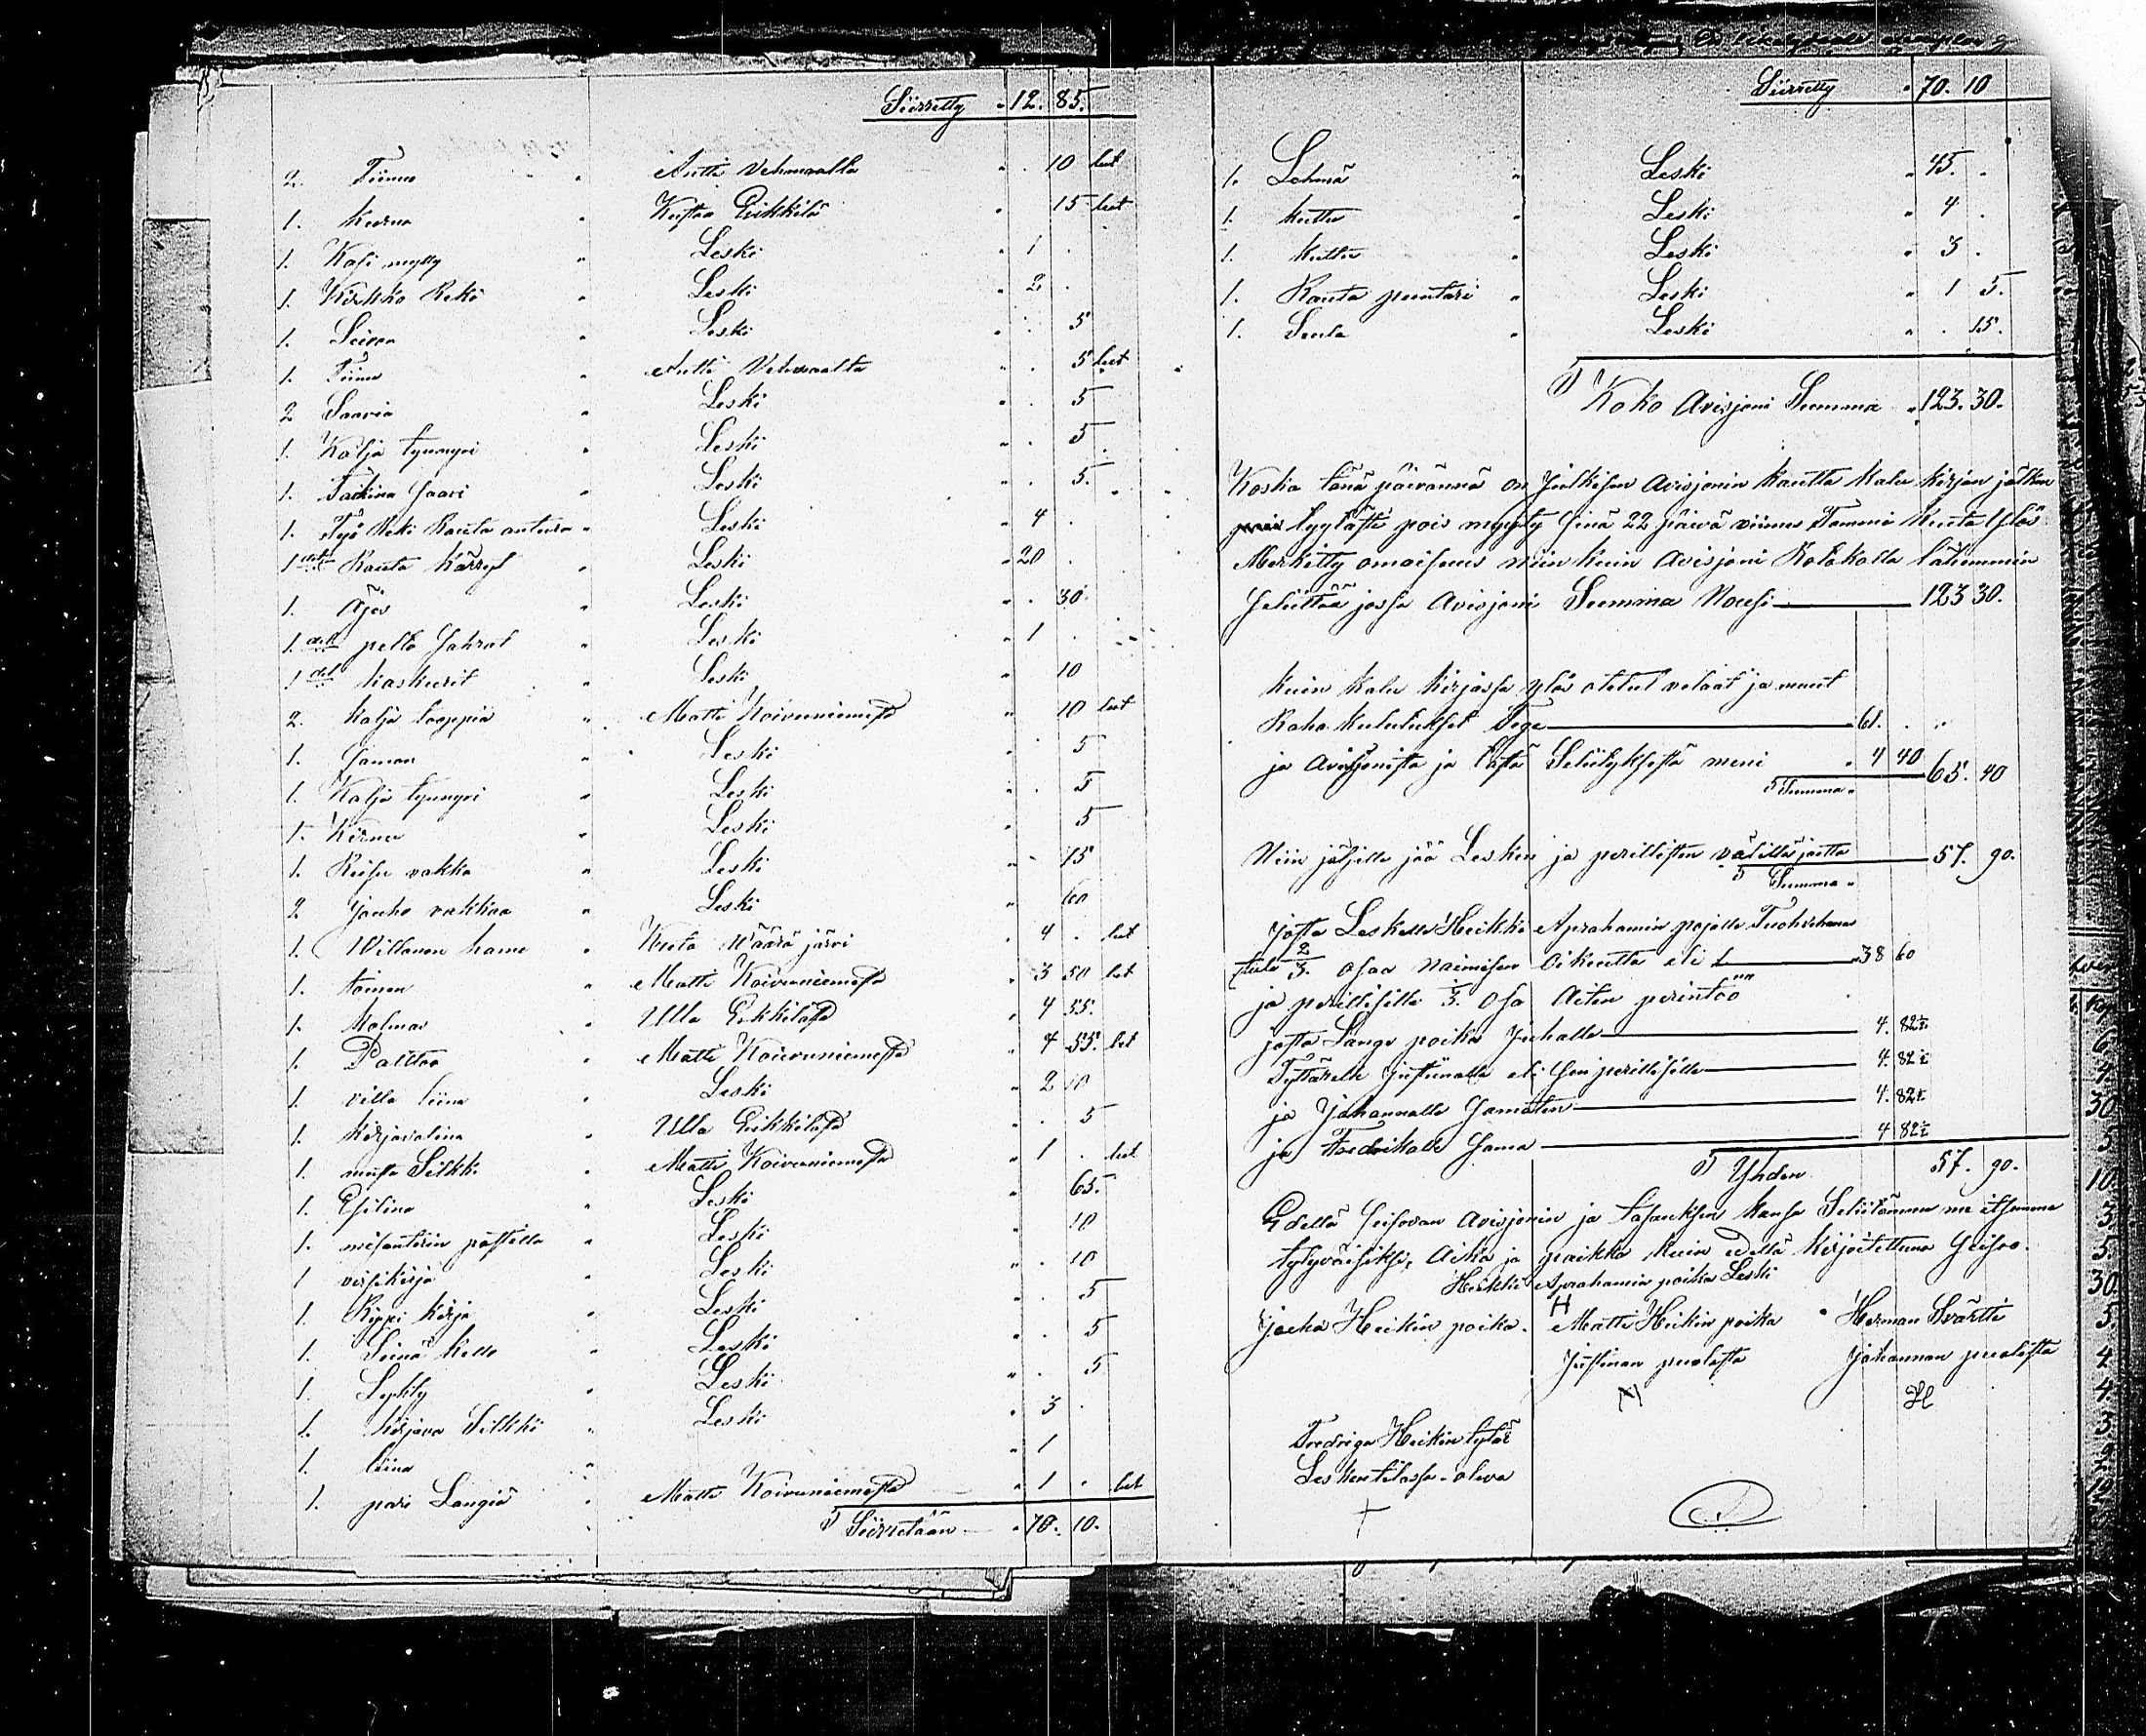 Siirretty " 12. 85.
2. Tiinua " Antti Vehmaalta " . 10 bet
1. Kurna " Kustaa Erikkilä " 15 bet
1. Käsi mylly " Leski " 1 .
1. Kirkko Reki " Leski " 2 .
1. Leski " . 5
1. Tiinu " Antti Vehmaalta " . 5 bet
2 Saavia " Leski " . 5
1. Kalja tynnyri " Leski " . 5
1. Taikina Saavi " Leski " . 5.
1. Työ Reki Rauta antura " Leski " 4 .
1 Rauta Kärryt " Leski " 20 .
1. Äjes " Leski " . 30
1. pelto Sahrat " Leski " 1 .
1 kaskurit " Leski " 10
2. kalja tooppia " Matti Koivuniemestä " 10 bet
1. Saman " Leski " . 5
1. Kalja tynnyri " Leski " . 5
1. Kirnu " Leski " 5
1. Riisu vakka " Leski " . 15
2 Jauho vakkaa " Leski " 60
1. Willanen hame " Määräjärvi " 4 . bet
1. toinen " Matti Koivuniemestä " 3 50 bet
1. Kolmas " Ulla Erkkilästä " 4 55.
1. Palttoo " Matti Koivuniemestä " 4 55. bet
1. villa liina " Leski " 2 10
1. kirjavaliina " Ulla Erkkilästä " . 5
1. musta Silkki " Matti Koivuniemestä " 1 . bet
1. Esiliina " Leski " 65.
1. postilla " Leski " 10
1 virsikirja " Leski " . 10
1. Rippi kirja " Leski " . 5
1. Seinä kello " Leski " . 5
1. Lyhty " Leski " . 5
1. kirjava Silkki " Leski " 3 .
1. liina " " 1
1. pari Langia " Matti Koivuniemestä " 1 . bet
Siirretään " 70. 10.
Siirretty " 70. 10
1. Lehmä " Leski " 45. .
1. kuttu " Leski " 4 .
1. kuttu " Leski " 3 .
1. Rauta puntari " Leski " 1 5.
1. Seula " Leski " . 15.
Koko Avisjoni Summa " 123. 30.
Koska tänä päivännä on Julkisen Avisjonin kautta kalu kirjan jälken
pois myyty Sinä 22 päivä viimes Tammi kuuta Ylös
Merkitty omaisuus niin kuin Avisjoni Rotokolla
Seliittää jossa Avisjoni Summa Nousi 123 30.
kuin kalu kirjassa ylös otetut velaat ja muut
Raha kulutukset Tege 61. . "
ja Avisjonista ja tästä Seliityksestä meni " 4 40 65. 40
Summa "
Niin jäljille jää Lesken ja perillisten välillä jaetta 57. 90.
Summa "
josta Leskelle Heikki Aprahamin pojalle
tule 2/3. osaa Naimisen Oikeutta eli 38 60
ja perillisille 1/3. osa Äitin perintöö
josta Lange poika Juhalle 4. 82½
Tyttärelle Justiinalle eli Sen perillisille 4. 82½
ja Johannalle Samaten 4. 82½
ja Fredrikalle Sama 4 82½
Yhden 57. 90.
Edellä Seisovan Avisjonin ja tasauksen kansa Seliitämmen me itsemme
tytyväisiksi, Aika ja paikka kuin edellä kirjoitettuna Seisoo.
Heikki Aprahamin poika Leski
H
Juha Heikin poika. Matti Heikin poika Herman Svärtti
Justinan puolesta Johannan puolesta
Fredriga Heikin tytär
Lesken tilassa oleva